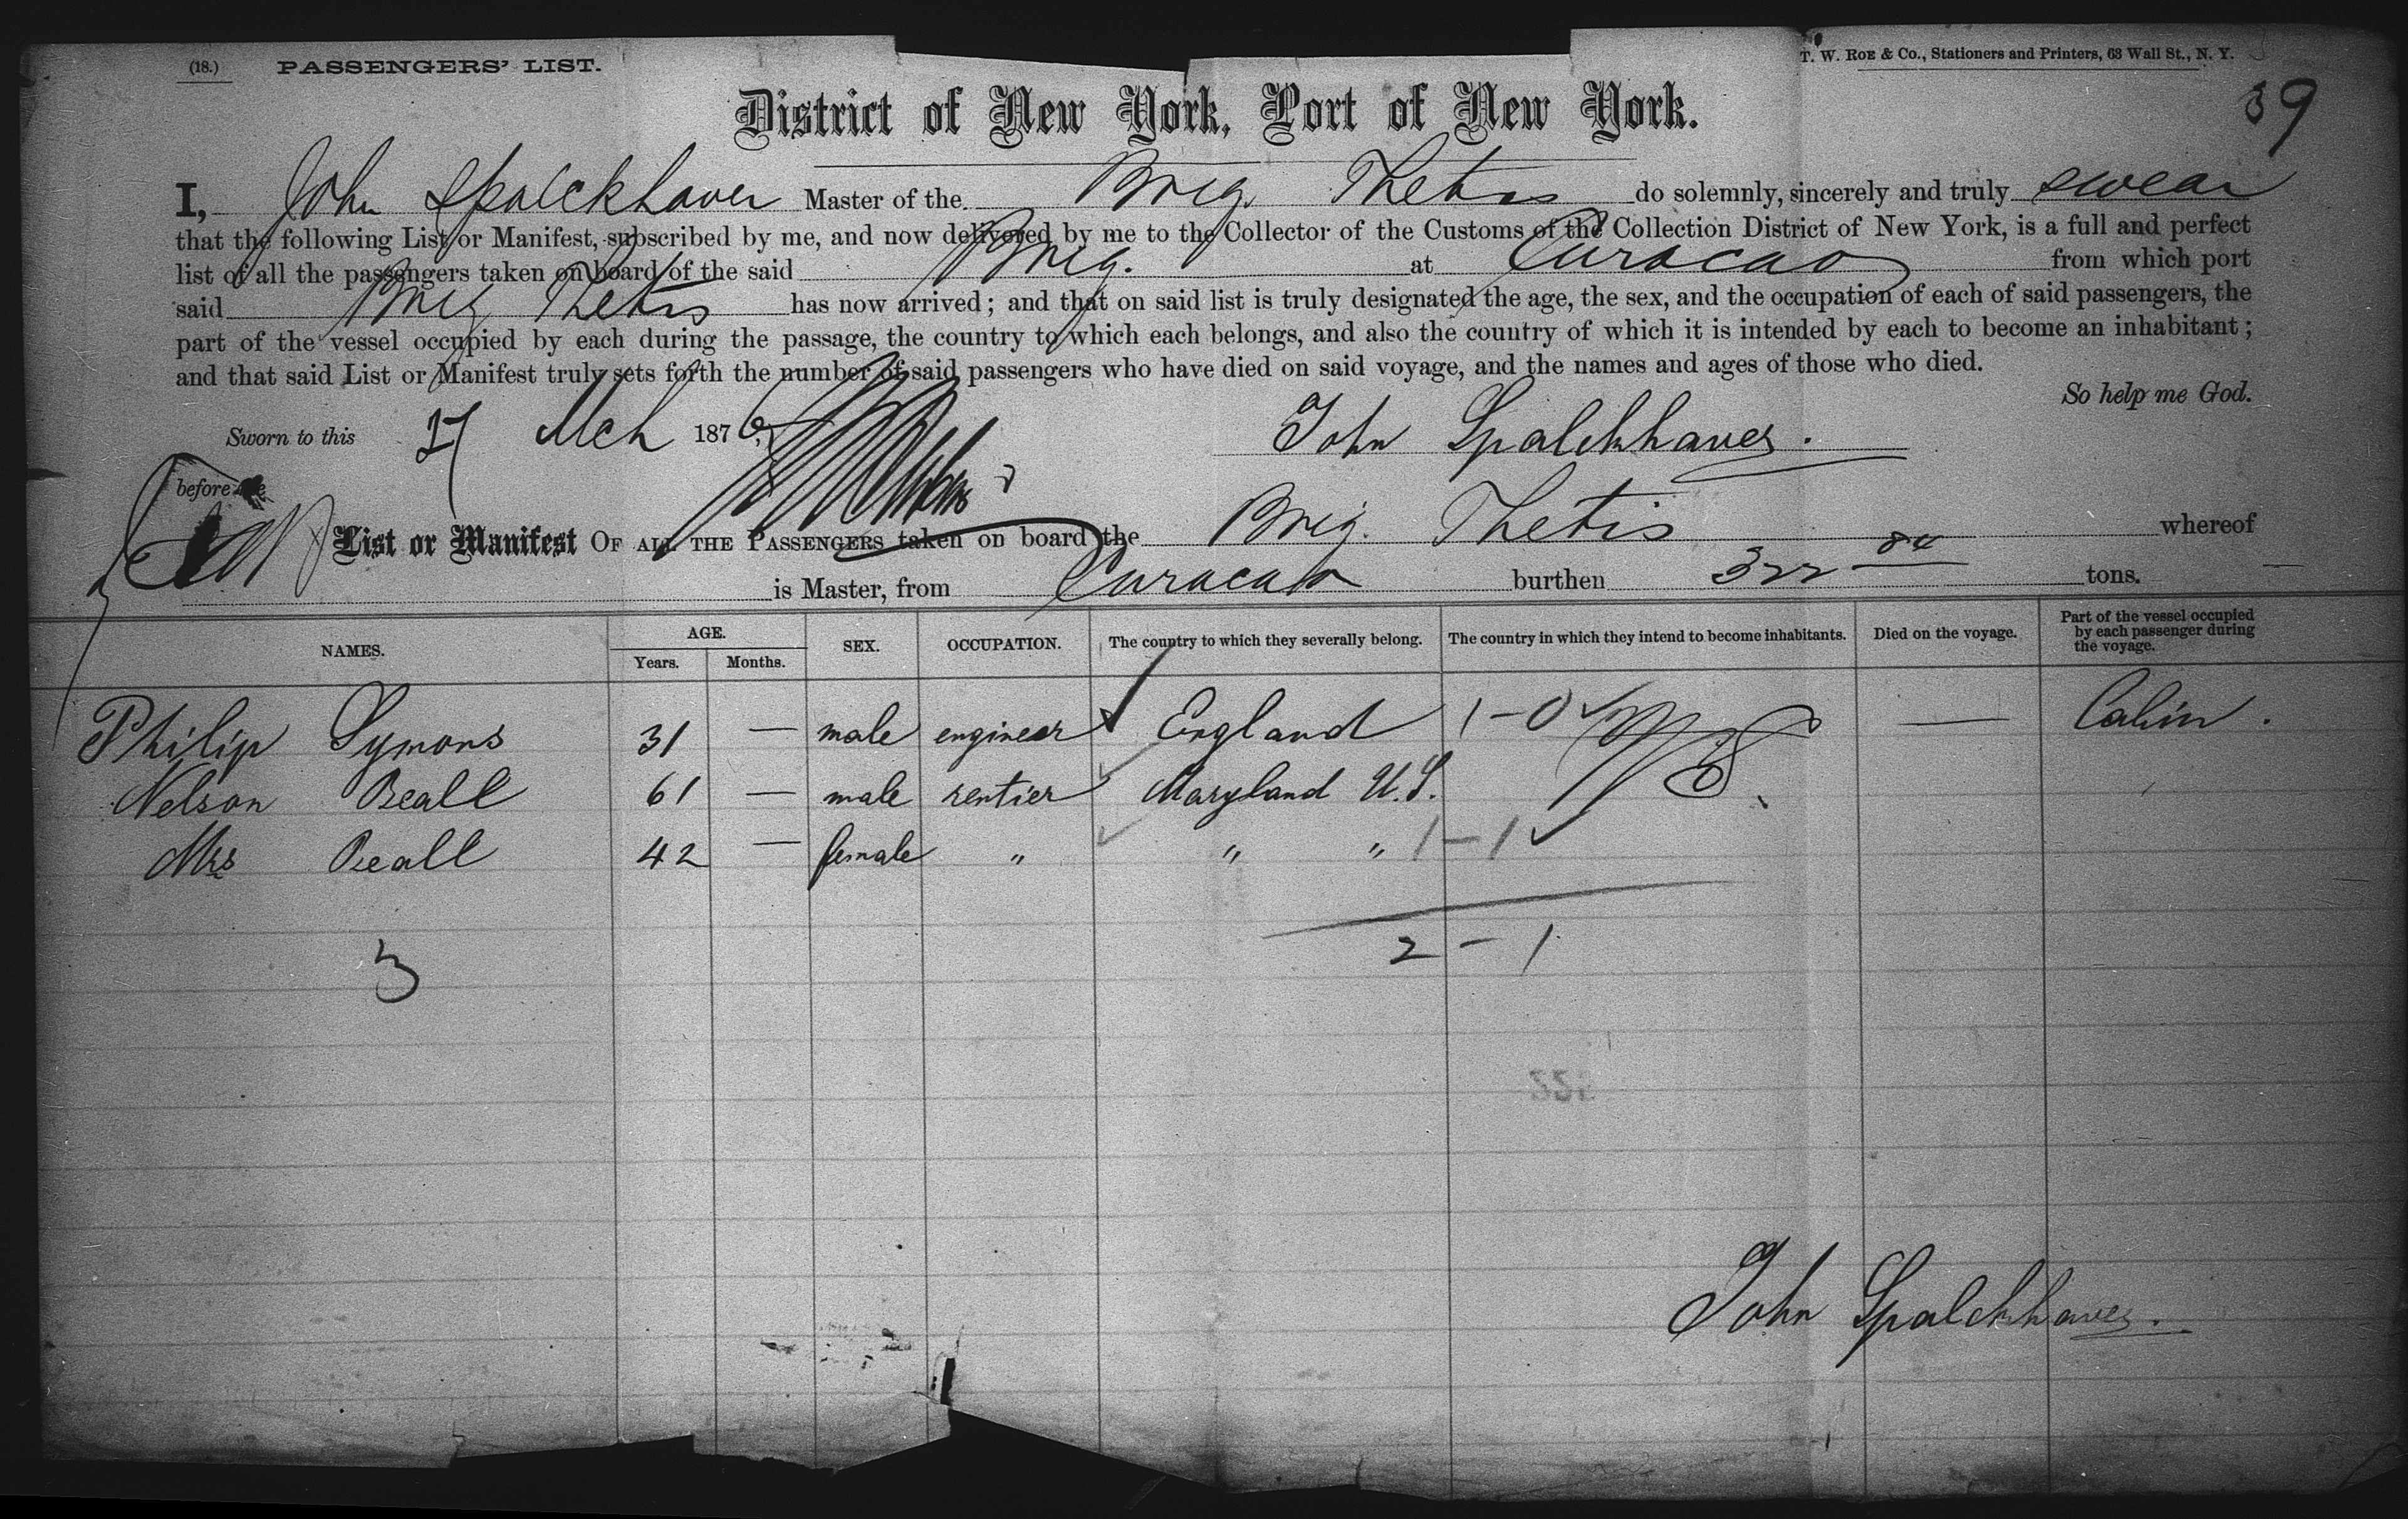 (18.) PASSENGERS' LIST. T. W. ROE & Co., Stationers and Printers, 63 Wall St., N. Y.
39
District of New York, Port of New York.
I, John Spalckhaver Master of the Brig Thetis do solemnly, sincerely and truly swear
that the following List or Manifest, subscribed by me, and now delivered by me to the Collector of the Customs of the Collection District of New York, is a full and perfect
list of all the passengers taken on board of the said Brig. at Curacao from which port
said Brig Thetis has now arrived; and that on said list is truly designated the age, the sex, and the occupation of each of said passengers, the
part of the vessel occupied by each during the passage, the country to which each belongs, and also the country of which it is intended by each to become an inhabitant;
and that said List or Manifest truly sets forth the number of said passengers who have died on said voyage, and the names and ages of those who died.
So help me God.
Sworn to this 17 Mch 1876 John Spalckhaver.
before me
List or Manifest OF ALL THE PASSENGERS taken on board the Brig. Thetis whereof
is Master, from Curacao burthen 322 84 tons.
NAMES. AGE. Years. Months. SEX. OCCUPATION. The country to which they severally belong. The country in which they intend to become inhabitants. Died on the voyage. Part of the vessel occupied by each passenger during the voyage.
Philip Symons 31 — male engineer England 1-0 — Cabin.
Nelson Beall 61 — male rentier Maryland U.S.
Mrs Beall 42 — female " " " 1-1
2 - 1
3
John Spalckhaver.